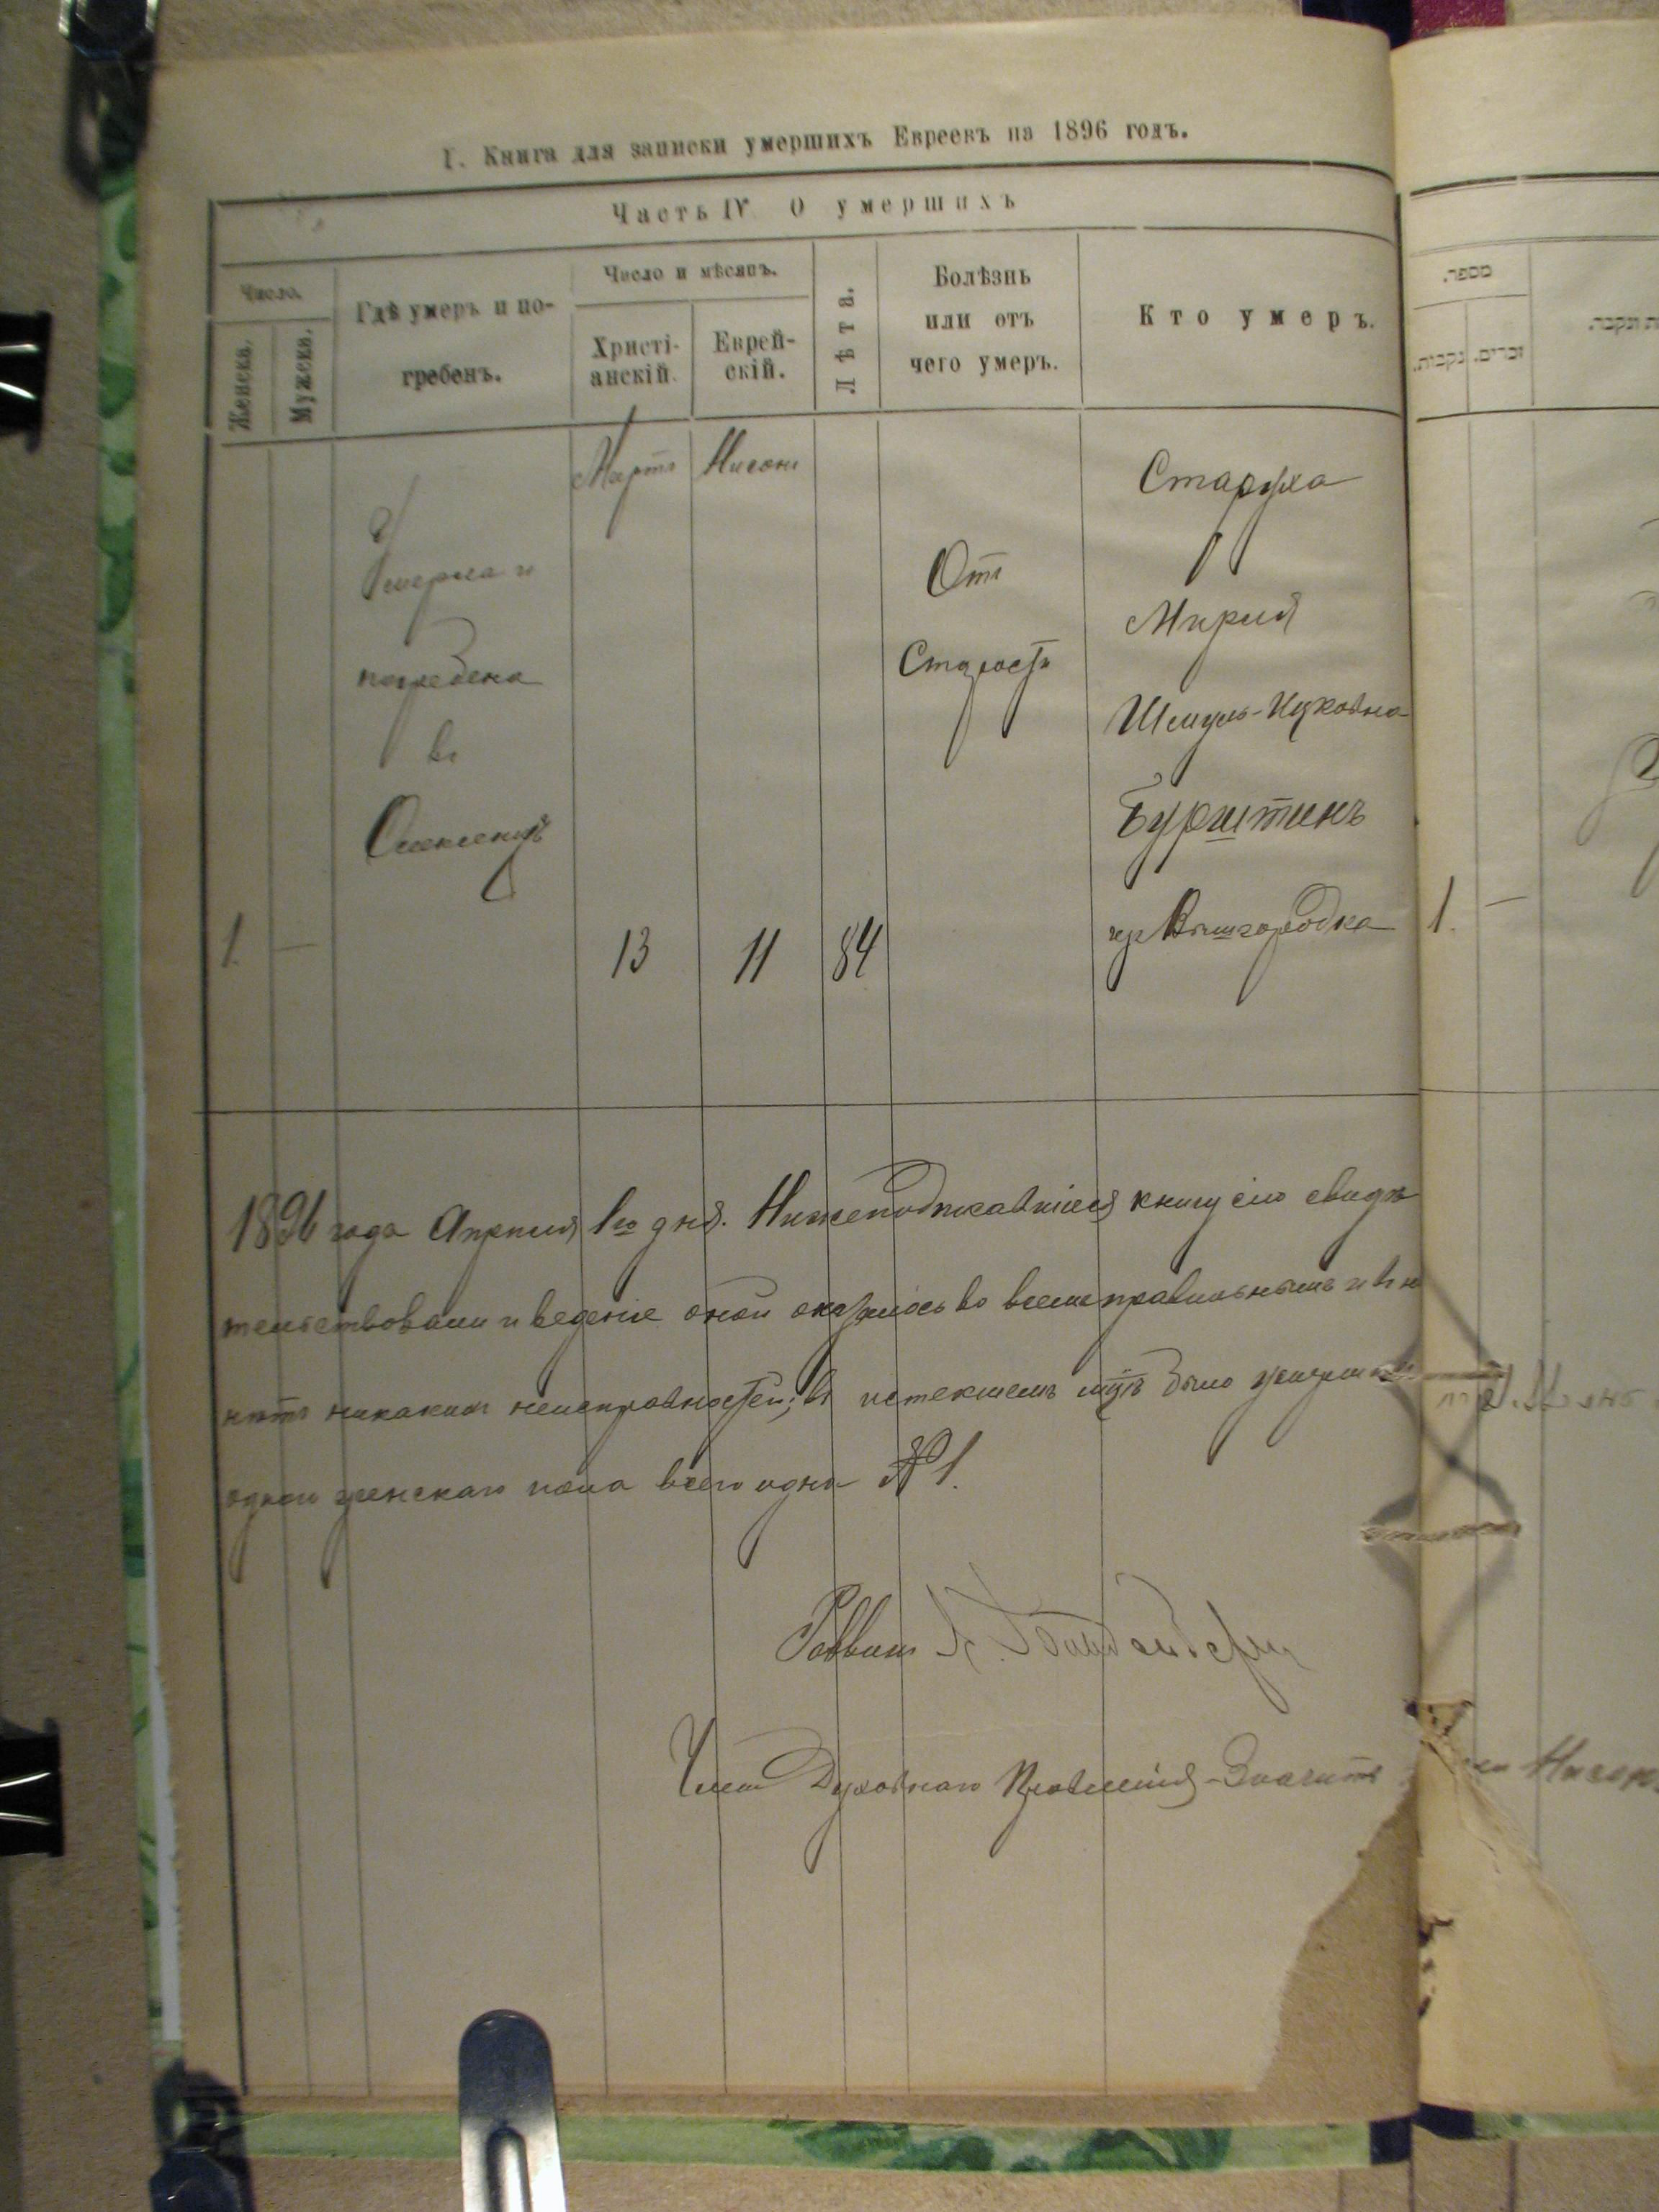 I. Книга для записки умершихъ Евреевъ на 1896 годъ.
Часть IV О умершихъ
Число.
Женска.
Мужеска.
Гдѣ умеръ и по-
гребенъ.
Число и мѣсяцъ.
Христі-
анскій.
Еврей-
скій.
Лѣта.
Болѣзнь
или отъ
чего умеръ.
Кто умеръ.
Мартъ
Нисонъ
Умерла и
погребена
въ
1.
—
13
11
84
Отъ
Старости
Старуха
Мирля
Шмуль-Ицковна
Бурштинъ
изъ Вышгородка
1896 года Апреля 1го дня. Нижеподписавшіеся книгу сію свидѣ
тельствовали и веденіе оной оказалось во всемъ правильнымъ и въ н
нѣтъ никакихъ неисправностей; въ истекшемъ мцѣ было умерш
одного женскаго пола всего одна №1.
Раввинъ
Членъ Духовнаго Правленія
מספר.
נקבות.
זכרים.
1.
—